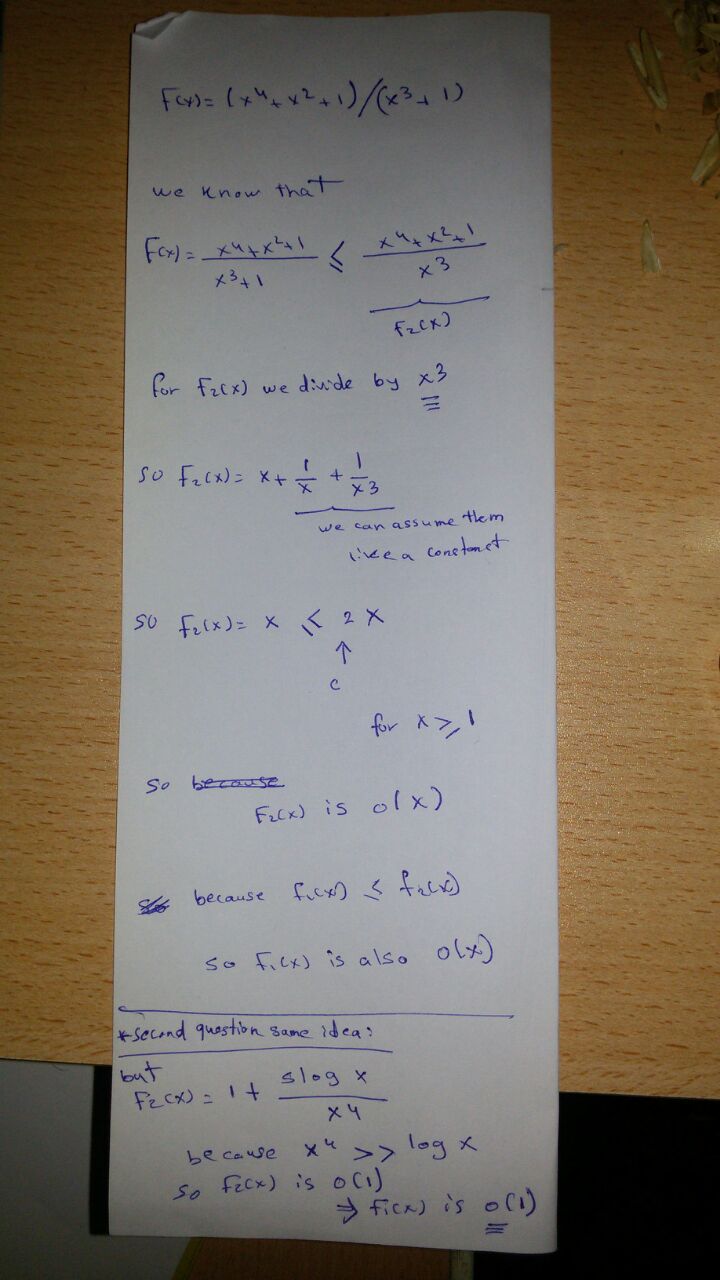 F(x) = (x⁴ + x² + 1)/(x³ + 1)
we know that
F(x) = (x⁴ + x² + 1)/(x³ + 1) ≤ (x⁴ + x² + 1)/x³
F₂(x)
for F₂(x) we divide by x³
so F₂(x) = x + 1/x + 1/x³
we can assume them
like a constant
so F₂(x) = x ≤ 2 x
↑
c
for x ≥ 1
so because
F₂(x) is o(x)
so because f₁(x) ≤ f₂(x)
so F₁(x) is also o(x)
*second question same idea:
but
F₂(x) = 1 + 5log x / x⁴
because x⁴ >> log x
so F₂(x) is o(1)
⇒ f₁(x) is o(1)